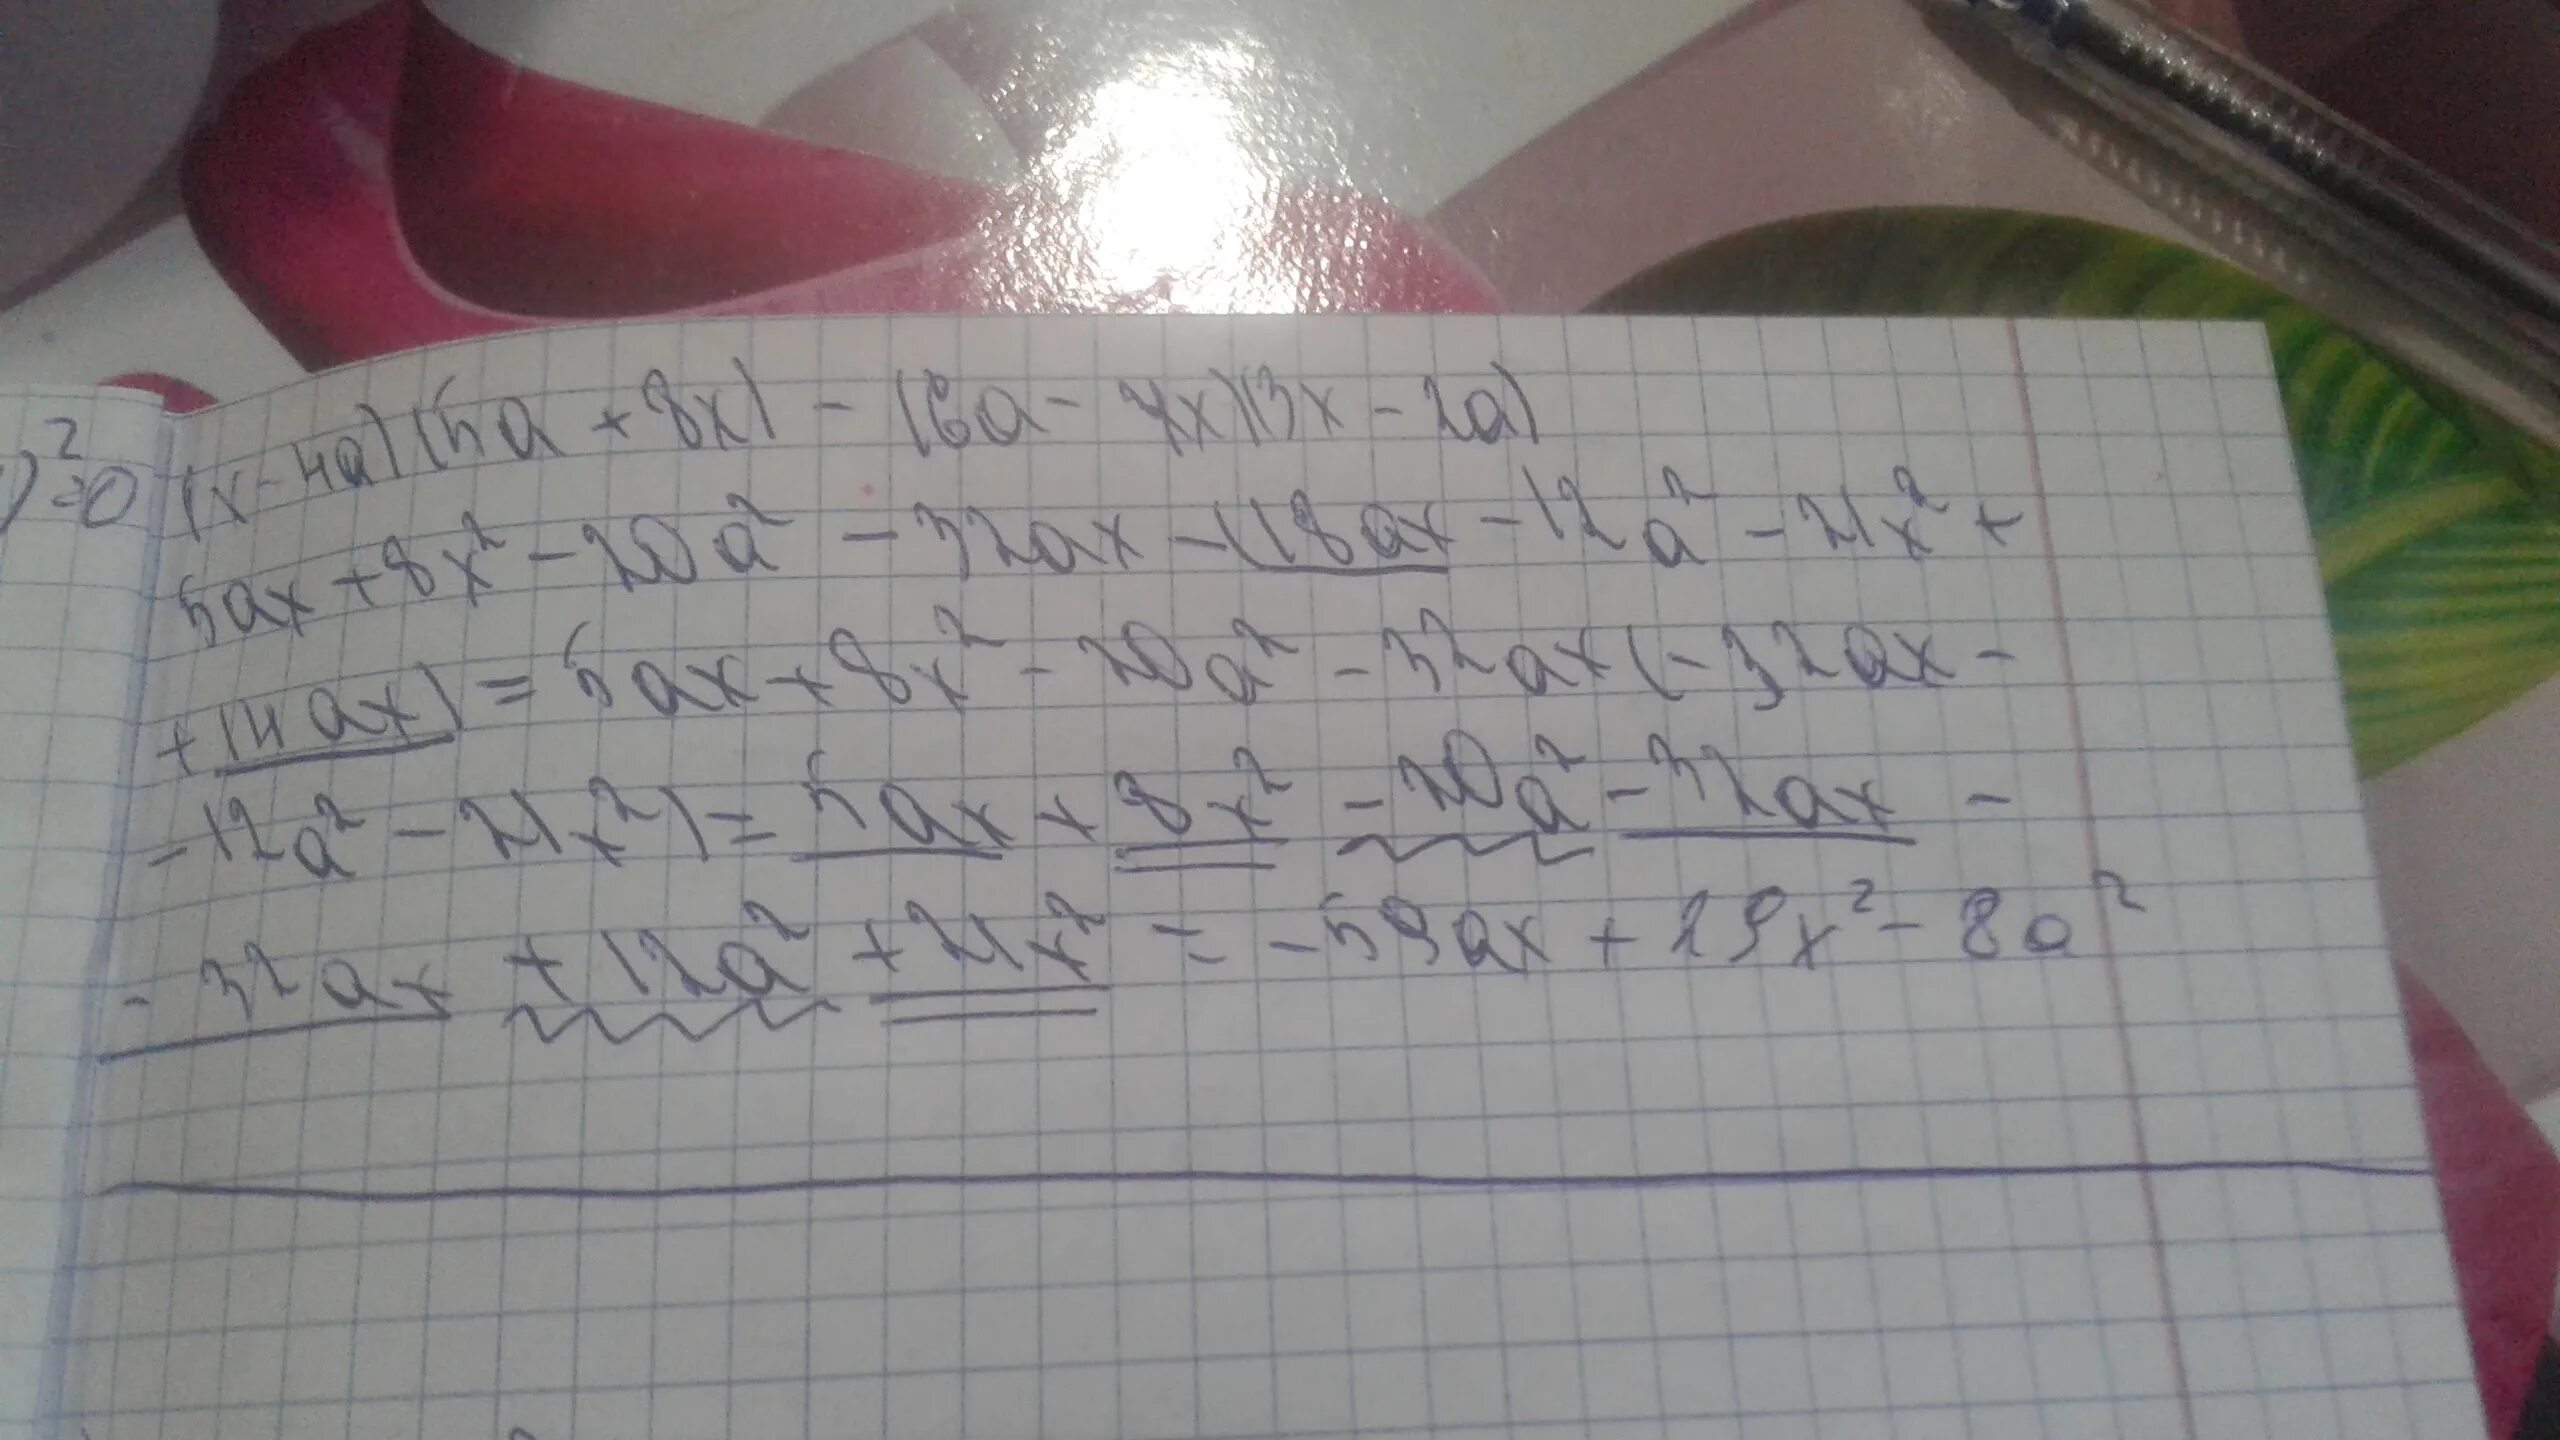 )² =0
(x - 4a)(5a + 8x) - (6a - 7x)(3x - 2a)
5ax + 8x² - 20a² - 32ax - (18ax - 12a² - 21x² +
+ 14ax) = 5ax + 8x² - 20a² - 32ax (- 32ax -
- 12a² - 21x²) = 5ax + 8x² - 20a² - 32ax -
- 32ax + 12a² + 21x² = - 59ax + 29x² - 8a²